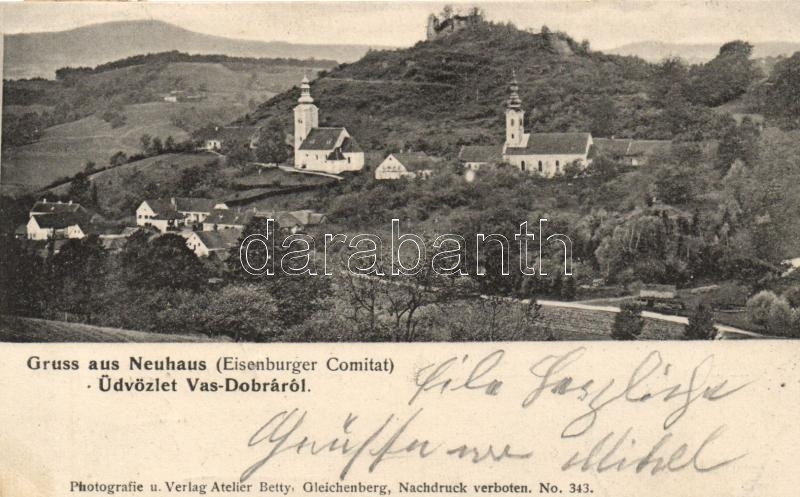 darabanth
Gruss aus Neuhaus (Eisenburger Comitat)
· Üdvözlet Vas-Dobráról.
Herzliche
Grüsse
Photografie u. Verlag Atelier Betty, Gleichenberg, Nachdruck verboten. No. 343.